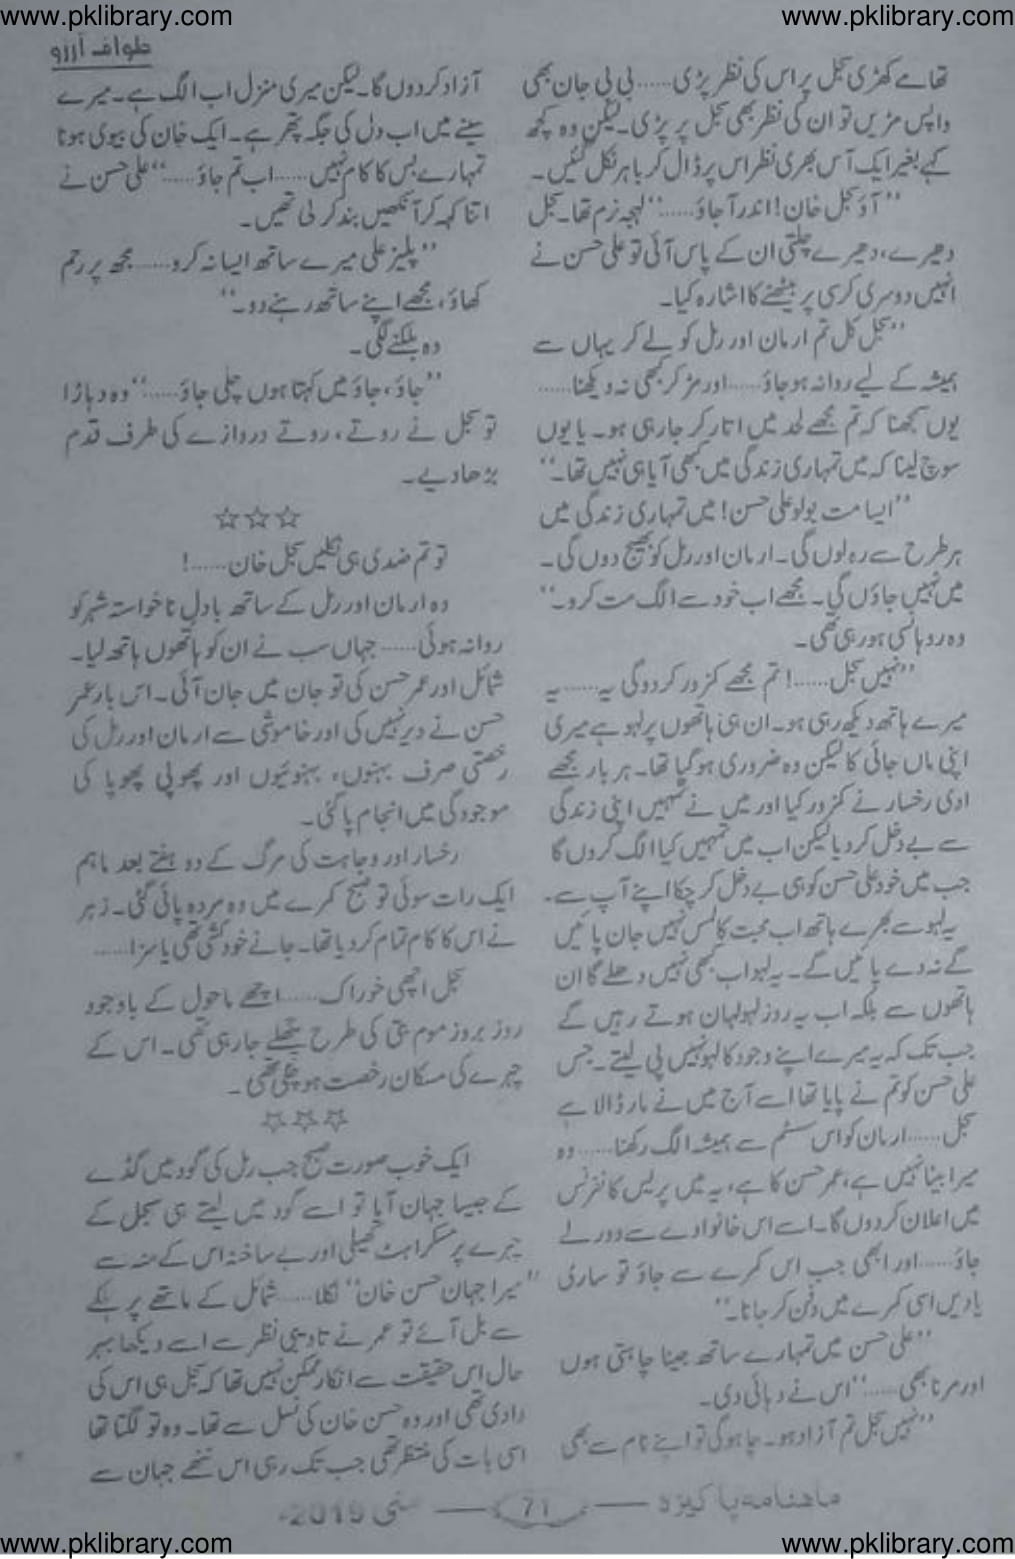 www.pklibrary.com www.pklibrary.com
طواف آرزو
تھامے کھڑی سجل پر اس کی نظر پڑی...... بی بی جان بھی
واپس مڑیں تو ان کی نظر بھی سجل پر پڑی۔ لیکن وہ کچھ
کہے بغیر ایک آس بھری نظر اس پر ڈال کر باہر نکل گئیں۔
’’آؤ سجل خان! اندر آجاؤ......‘‘ لہجہ نرم تھا۔ سجل
دھیرے، دھیرے چلتی ان کے پاس آئی تو علی حسن نے
انہیں دوسری کرسی پر بیٹھنے کا اشارہ کیا۔
’’سجل کل تم ارمان اور رمل کو لے کر یہاں سے
ہمیشہ کے لیے روانہ ہوجاؤ...... اور مڑ کر کبھی نہ دیکھنا......
یوں سمجھنا کہ تم مجھے لحد میں اتار کر جارہی ہو۔ یا یوں
سوچ لینا کہ میں تمہاری زندگی میں کبھی آیا ہی نہیں تھا۔‘‘
’’ایسا مت بولو علی حسن! میں تمہاری زندگی میں
ہر طرح سے رہ لوں گی۔ ارمان اور رمل کو بھیج دوں گی۔
میں نہیں جاؤں گی۔ مجھے اب خود سے الگ مت کرو۔‘‘
وہ روہانسی ہورہی تھی۔
’’نہیں سجل......! تم مجھے کمزور کردو گی یہ...... یہ
میرے ہاتھ دیکھ رہی ہو۔ ان ہی ہاتھوں پر لہو ہے میری
اپنی ماں جائی کا لیکن وہ ضروری ہوگیا تھا۔ ہر بار مجھے
ادی رخسار نے کمزور کیا اور میں نے تمہیں اپنی زندگی
سے بے دخل کردیا لیکن اب میں تمہیں کیا الگ کروں گا
جب میں خود علی حسن کو ہی بے دخل کرچکا اپنے آپ سے۔
یہ لہو سے بھرے ہاتھ اب محبت کا لمس نہیں جان پائیں
گے نہ دے پائیں گے۔ یہ لہو اب کبھی نہیں دھلے گا ان
ہاتھوں سے بلکہ اب یہ روز لہولہان ہوتے رہیں گے
جب تک کہ یہ میرے اپنے وجود کا لہو نہیں پی لیتے۔ جس
علی حسن کو تم نے پایا تھا اسے آج میں نے مار ڈالا ہے
سجل...... ارمان کو اس سسٹم سے ہمیشہ الگ رکھنا...... وہ
میرا بیٹا نہیں ہے، عمر حسن کا ہے، یہ میں پریس کانفرنس
میں اعلان کردوں گا۔ اسے اس خانوادے سے دور لے
جاؤ...... اور ابھی جب اس کمرے سے جاؤ تو ساری
یادیں اسی کمرے میں دفن کر جانا۔‘‘
’’علی حسن میں تمہارے ساتھ جینا چاہتی ہوں
اور مرنا بھی......‘‘ اس نے دہائی دی۔
’’نہیں سجل تم آزاد ہو۔ چاہو گی تو اپنے نام سے بھی
آزاد کردوں گا۔ لیکن میری منزل اب الگ ہے۔ میرے
سینے میں اب دل کی جگہ پتھر ہے۔ ایک خان کی بیوی ہونا
تمہارے بس کا کام نہیں...... اب تم جاؤ......‘‘ علی حسن نے
اتنا کہہ کر آنکھیں بند کرلی تھیں۔
’’پلیز علی میرے ساتھ ایسا نہ کرو...... مجھ پر رحم
کھاؤ، مجھے اپنے ساتھ رہنے دو۔‘‘
وہ بلکنے لگی۔
’’جاؤ، جاؤ میں کہتا ہوں چلی جاؤ......‘‘ وہ دہاڑا
تو سجل نے روتے، روتے دروازے کی طرف قدم
بڑھا دیے۔
☆☆☆
تو تم ضدی ہی نکلیں سجل خان......!
وہ ارمان اور رمل کے ساتھ بادلِ ناخواستہ شہر کو
روانہ ہوئی...... جہاں سب نے ان کو ہاتھوں ہاتھ لیا۔
شمائل اور عمر حسن کی تو جان میں جان آئی۔ اس بار عمر
حسن نے دیر نہیں کی اور خاموشی سے ارمان اور رمل کی
رخصتی صرف بہنوں، بہنوئیوں اور پھوپی پھوپا کی
موجودگی میں انجام پاگئی۔
رخسار اور وجاہت کی مرگ کے دو ہفتے بعد ماہم
ایک رات سوئی تو صبح کمرے میں وہ مردہ پائی گئی۔ زہر
نے اس کا کام تمام کردیا تھا۔ جانے خودکشی تھی یا سزا......
سجل اچھی خوراک...... اچھے ماحول کے باوجود
روز بروز موم بتی کی طرح پگھلے جارہی تھی۔ اس کے
چہرے کی مسکان رخصت ہوچکی تھی۔
☆☆☆
ایک خوب صورت صبح جب رمل کی گود میں گڈے
کے جیسا جہان آیا تو اسے گود میں لیتے ہی سجل کے
چہرے پر مسکراہٹ پھیلی اور بے ساختہ اس کے منہ سے
’’میرا جہان حسن خان‘‘ نکلا...... شمائل کے ماتھے پر ہلکے
سے بل آئے تو عمر نے تادیبی نظر سے اسے دیکھا بہر
حال اس حقیقت سے انکار ممکن نہیں تھا کہ سجل ہی اس کی
دادی تھی اور وہ حسن خان کی نسل سے تھا۔ وہ تو لگتا تھا
اسی بات کی منتظر تھی جب تک رہی اس ننھے جہان سے
ماہنامہ پاکیزہ 71 مئی 2019ء
www.pklibrary.com www.pklibrary.com